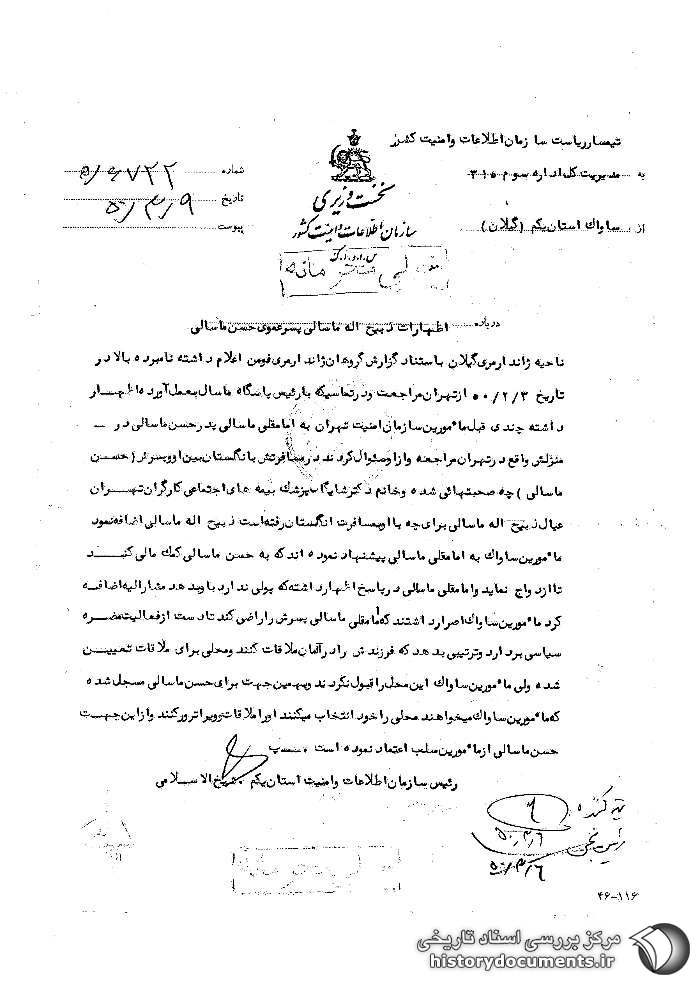 تیمسار ریاست سازمان اطلاعات و امنیت کشور
به مدیریت کل اداره سوم ۳۱۵
از ساواک استان یکم (گیلان)
نخست وزیری
سازمان اطلاعات و امنیت کشور
س.ا.و.ا.ک
شماره ۵/۶۷۲۲
تاریخ ۵۰/۳/۹
پیوست
خیلی محرمانه
درباره اظهارات ذبیح اله ماسالی پسرعموی حسن ماسالی
ناحیه ژاندارمری گیلان باستناد گزارش گروهان ژاندارمری فومن اعلام داشته نامبرده بالا در
تاریخ ۵۰/۲/۳ از تهران مراجعت و در تماسیکه با رئیس پاسگاه ماسال بعمل آورده اظهار
داشته چندی قبل مأمورین سازمان امنیت تهران به امامقلی ماسالی پدر حسن ماسالی در
منزلش واقع در تهران مراجعه و از او سئوال کردند در مسافرتش بانگلستان بین او و پسرش (حسن
ماسالی) چه صحبتهائی شده و خانم دکتر شایگان پزشک بیمه های اجتماعی کارگران تهران
عیال ذبیح اله ماسالی برای چه با او بمسافرت انگلستان رفته است ذبیح اله ماسالی اضافه نمود
مأمورین ساواک به امامقلی ماسالی پیشنهاد نموده اند که به حسن ماسالی کمک مالی کنید
تا ازدواج نماید و امامقلی ماسالی در پاسخ اظهار داشته که پولی ندارد باو بدهد مشارالیه اضافه
کرد مأمورین ساواک اصرار داشتند که امامقلی ماسالی پسرش را راضی کند تا دست از فعالیت مضره
سیاسی بردارد و ترتیبی بدهد که فرزندش را در آلمان ملاقات کنند و محلی برای ملاقات تعیین
شده ولی مأمورین ساواک این محل را قبول نکردند و بهمین جهت برای حسن ماسالی مسجل شده
که مأمورین ساواک میخواهند محلی را خود انتخاب میکنند او را ملاقات و ترور کنند و از این جهت
حسن ماسالی از مأمورین سلب اعتماد نموده است
رئیس سازمان اطلاعات و امنیت استان یکم شیخ الاسلامی
تهیه کننده ۶
۵۰/۳/۶
رئیس بخش
۵۰/۳/۶
خیلی محرمانه
۴۶-۱۱۶
مرکز بررسی اسناد تاریخی
historydocuments.ir